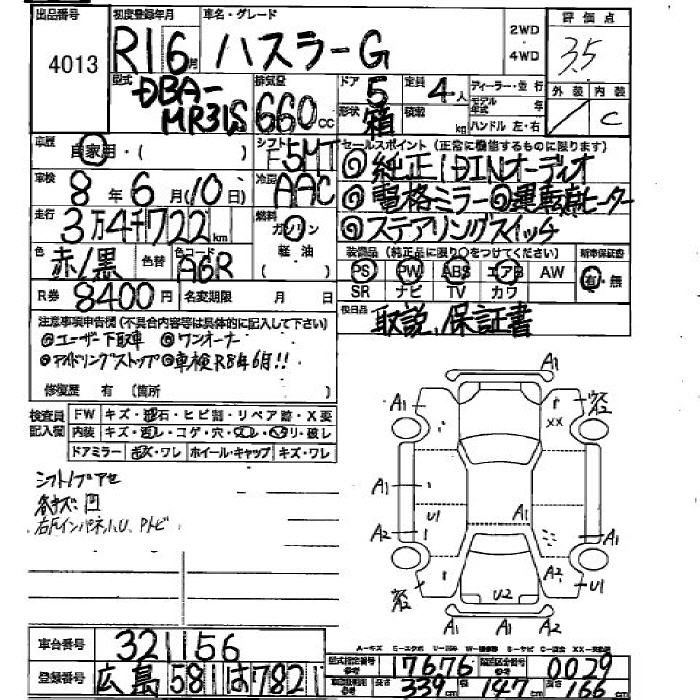 出品番号 初度登録年月 車名・グレード 評価点
4013 R1 6月 ハスラーG 2WD 4WD 3.5
型式 DBA-MR31S 排気量 660cc ドア 5 定員 4人 ディーラー・並行 外装 内装
形状 箱 積載 kg モデル年式 年 ハンドル 左・右 C
車歴 自家用・( ) シフト F5MT セールスポイント (正常に機能するものに限ります)
◎純正1DINオーディオ
車検 8年6月(10日) 冷房 AAC ◎電格ミラー◎運転席ヒーター
走行 3万4千722km 燃料 ガソリン 軽油 ( ) ◎ステアリングスイッチ
色 赤/黒 色替 色コード A6R 装備品 (純正品に限り○をつけてください) 新車保証書
PS PW ABS エアB AW 有・無
R券 8400円 名変期限 月 日 SR ナビ TV カワ
注意事項申告欄 (不具合内容等は具体的に記入して下さい) 後日品 取説、保証書
◎ユーザー下取車 ◎ワンオーナー
◎アイドリングストップ ◎車検R8年6月!!
修復歴 有 (箇所 )
検査員記入欄 FW キズ・飛石・ヒビ割・リペア跡・X要
内装 キズ・汚レ・コゲ・穴・スレ・ヘリ・破レ
ドアミラー キズ・ワレ ホイール・キャップ キズ・ワレ
シフトノブアセ
各キズ凹
A1
A1 XX A2
A1
U1 A1
A2 A1
A2 U1
A2 U2
A1 A1 A2
A-キズ E-エクボ U-凹 W-補修跡 S-サビ C-腐食 XX-交換歴
車台番号 321156 型式指定番号 17676 類別区分番号 0029
登録番号 広島 581 は 7821 長さ 339cm 幅 147cm 高さ 166cm